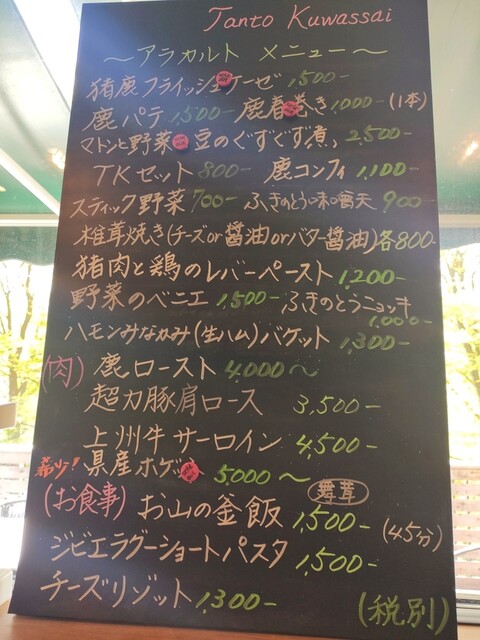 Tanto Kuwassai
〜アラカルト メニュー〜
猪鹿フライッシュケーゼ 1,500-
鹿パテ 1,500- 鹿春巻き 1,000-(1本)
マトンと野菜、豆のぐずぐず煮、2,500-
TKセット 800- 鹿コンフィ 1,100-
スティック野菜 700- ふきのとう味噌天 900-
椎茸焼き(チーズor醤油orバター醤油)各800-
猪肉と鶏のレバーペースト 1,200-
野菜のベニエ 1,500- ふきのとうニョッキ
1,000-
ハモンみなかみ(生ハム)バケット 1,300-
(肉) 鹿ロースト 4,000〜
超力豚肩ロース 3,500-
上州牛サーロイン 4,500-
希少! 県産ホゲット 5,000〜
(お食事) お山の釜飯 舞茸 1,500-(45分)
ジビエラグーショートパスタ 1,500-
チーズリゾット 1,300-
(税別)